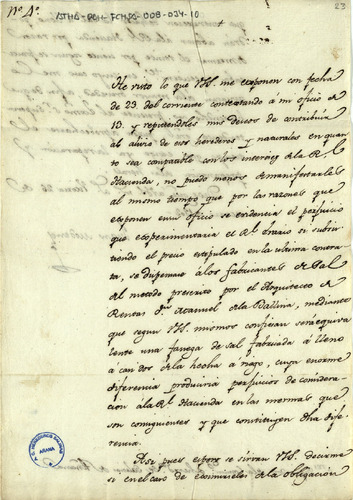 Nº 4º
ATHA-DAH-FCMDS-008-034-10
23
He visto lo que VSS. me exponen con fecha
de 23. del corriente contestando á mi oficio de
19. y repitiendoles mis deseos de contribuir
al alivio de esos herederos y naturales en quan-
to sea compatible con los intereses de la Rl.
Hacienda, no puedo menos de manifestarles
al mismo tiempo que por las razones que
exponen en su oficio se evidencia el perjuicio
que experimentaria el Rl. Erario si subsis-
tiendo el precio estipulado en la ultima contra-
ta, se dispensase á los fabricantes de Sal
del metodo prescrito por el Arquitecto de
Rentas Dn. Manuel de la Ballina, mediante
que segun VSS. mismos confiesan será equiva-
lente una fanega de sal fabricada á lleno
a con dos de la hecha a riego, cuya enorme
diferencia produciria perjuicios de considera-
cion á la Rl. Hacienda en las mermas que
son consiguientes y que constituyen dha dife-
rencia.
Asi pues espero se sirvan VSS. decirme
si en el caso de eximirseles de la obligación
ARABA